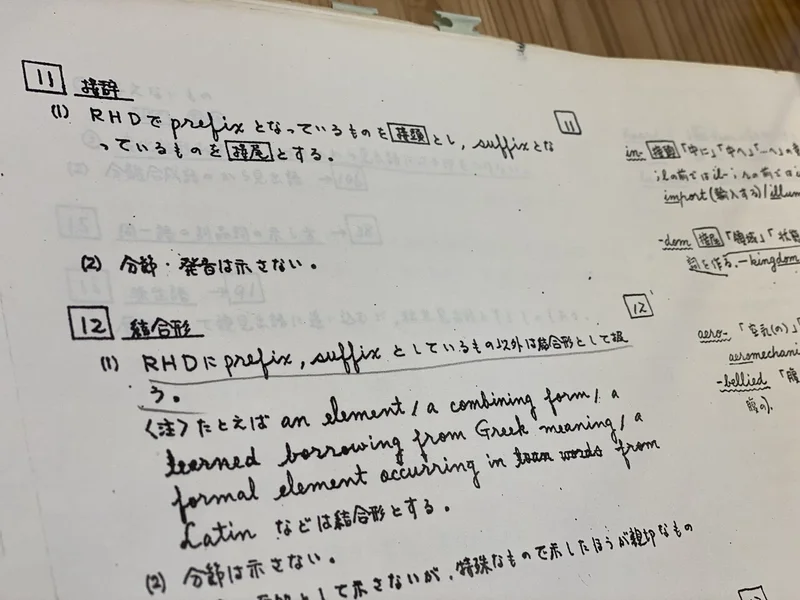 11 接辞
(1) RHDでprefixとなっているものを接頭とし, suffixとな
っているものを接尾とする。
(2) 分節・発音は示さない。
12 結合形
(1) RHDにprefix, suffixとしているもの以外は結合形として扱
う。
〈注〉たとえば an element / a combining form / a
learned borrowing from Greek meaning / a
formal element occurring in loan words from
Latin などは結合形とする。
(2) 分節は示さない。
として示さないが, 特殊なもので示したほうが親切なもの
11
in- 接頭 「中に」「中へ」「―へ」の
import (輸入する) / illum
-dom 接尾 「領域」「状
詞を作る. ―kingdom
12
aero- 「空気(の)」
aeromechani
-bellied 「腹
腹の).